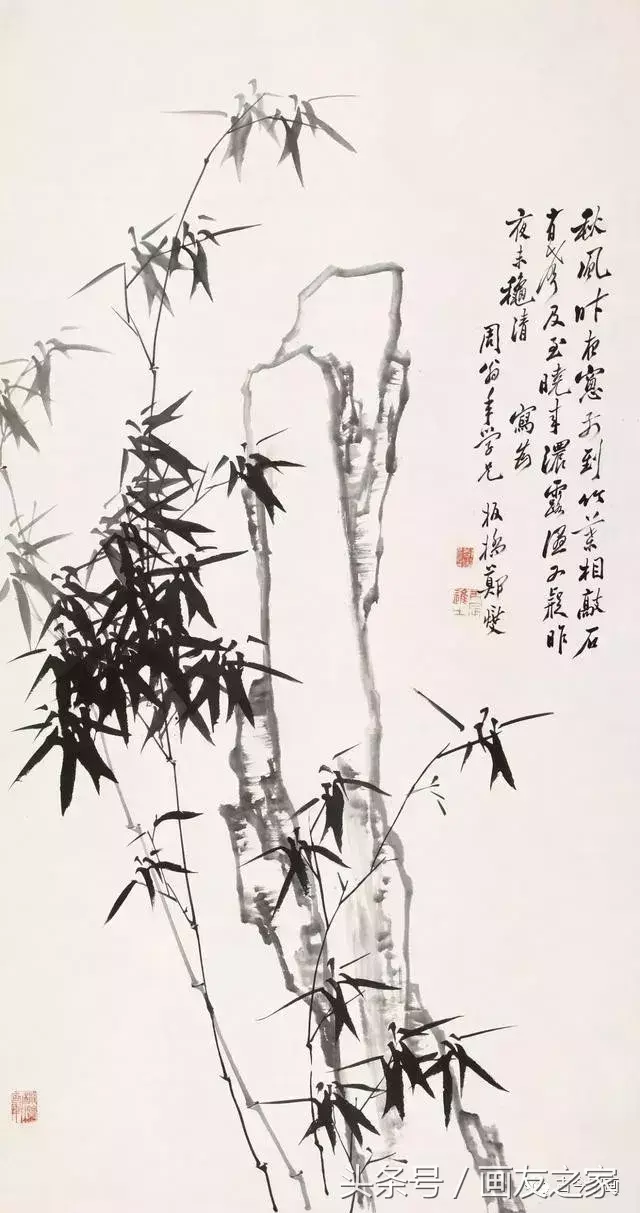 秋風昨夜窻前到竹葉相敲石
有聲及至曉來濃露濕又疑昨
夜未穐清 寫為
周翁年學兄 板橋鄭燮
头条号 / 画友之家